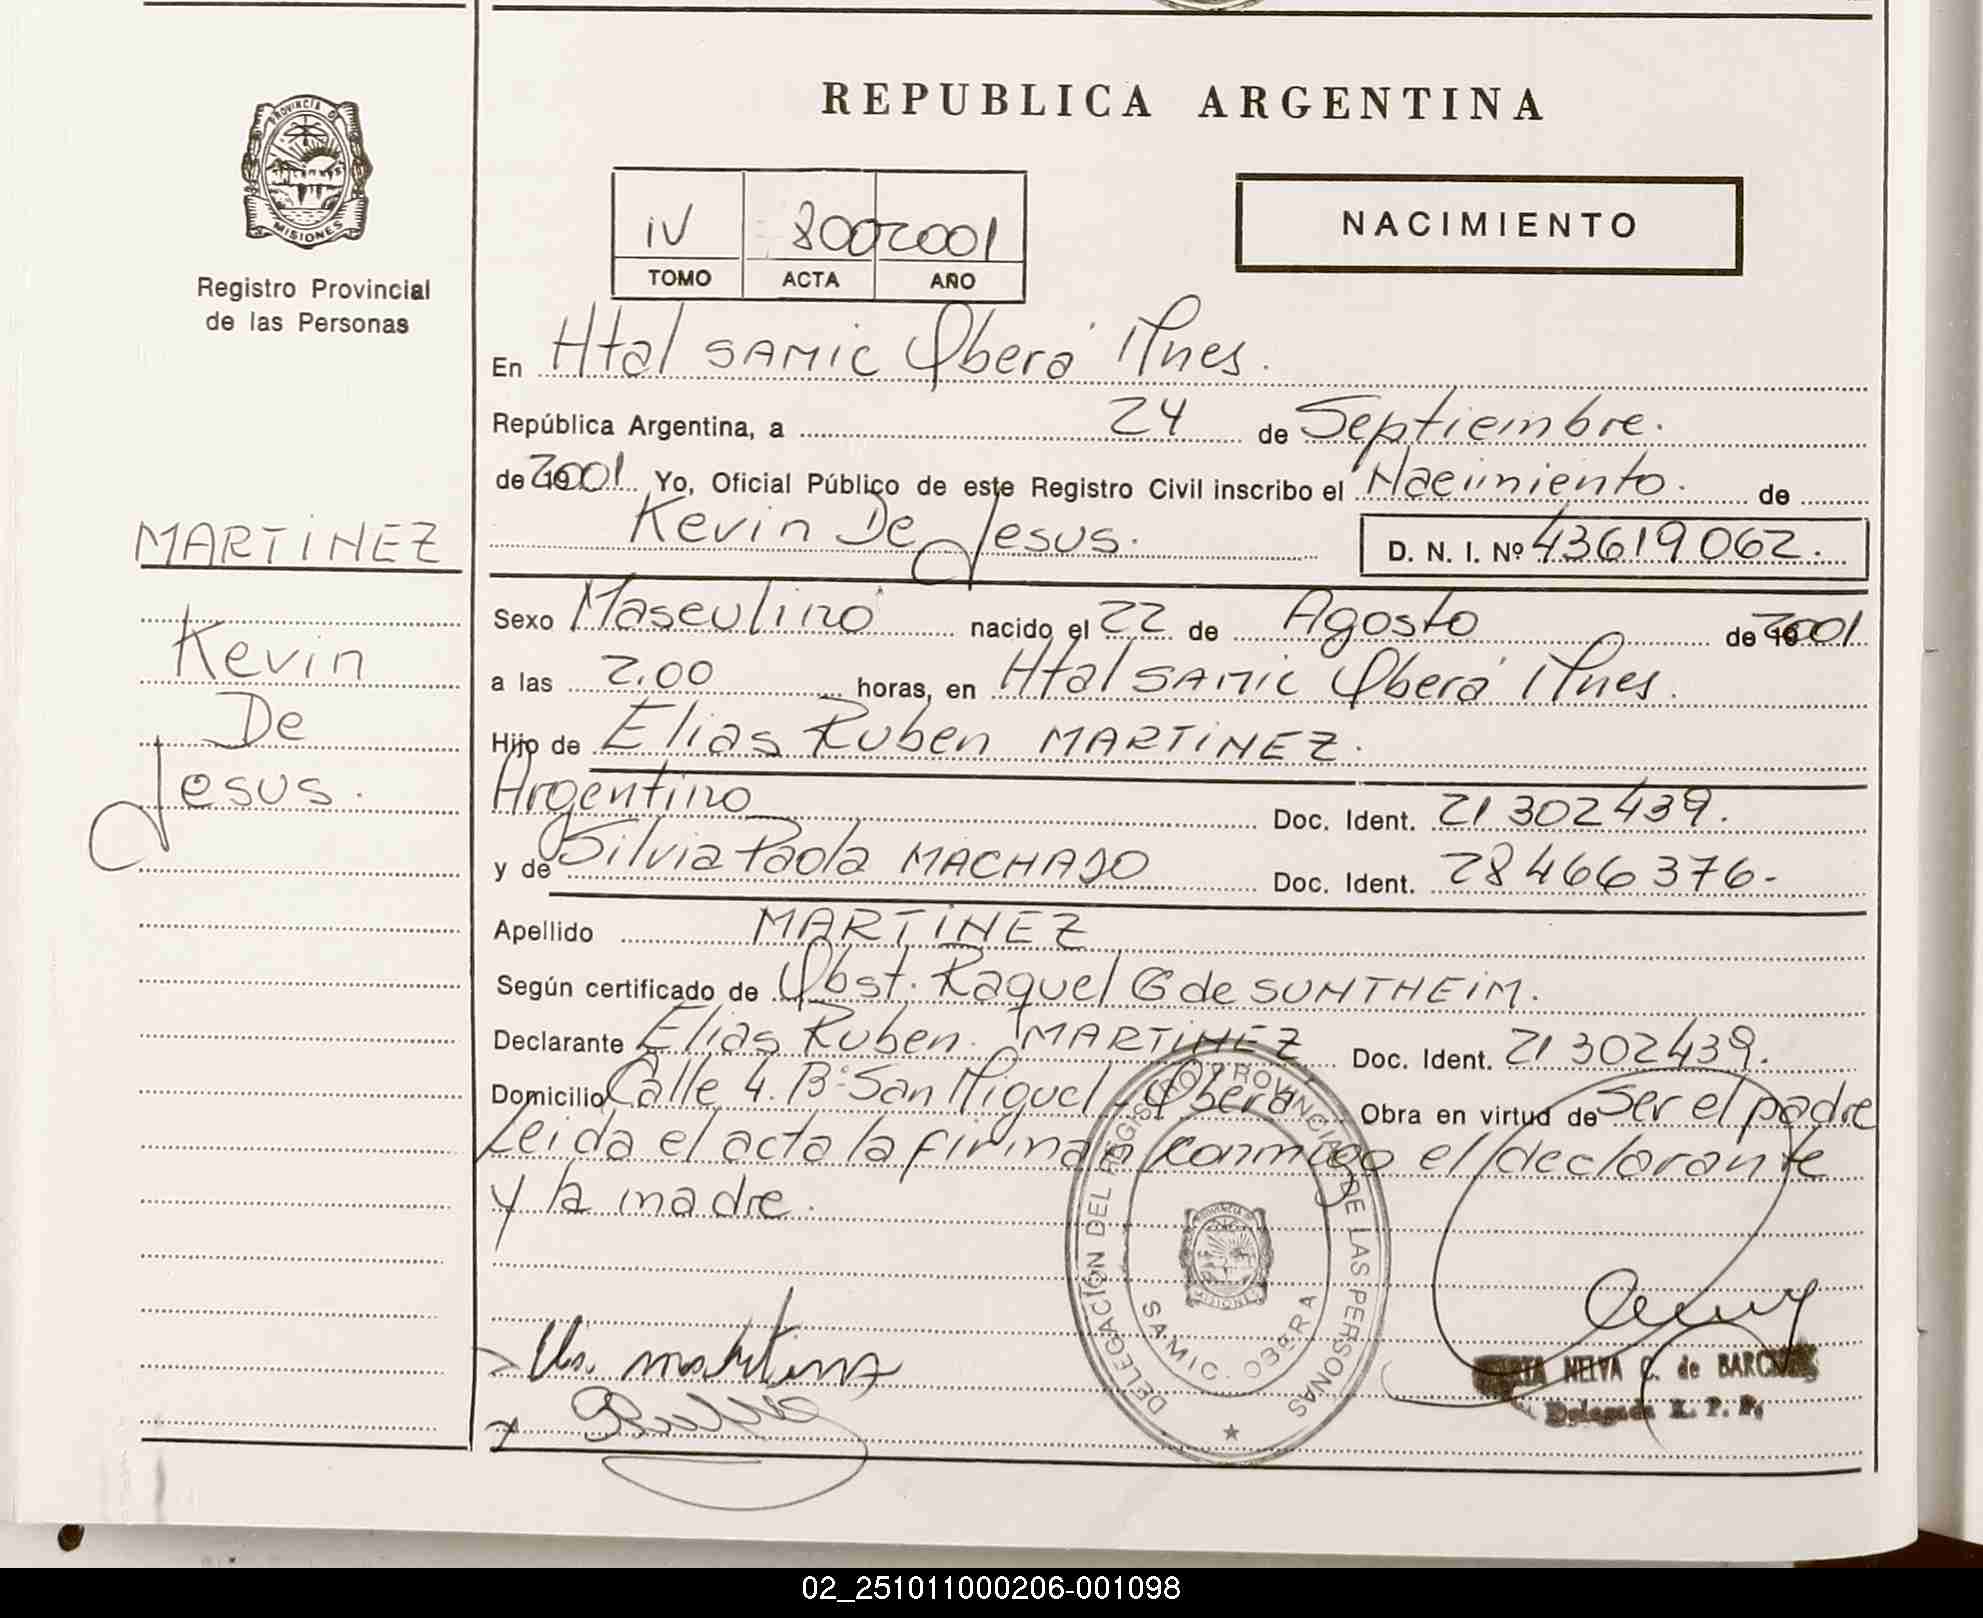 REPUBLICA ARGENTINA
PROVINCIA DE
MISIONES
Registro Provincial
de las Personas
iV 800 2001
TOMO ACTA AÑO
NACIMIENTO
En Htal SAMIC Oberá Mnes.
República Argentina, a 24 de Septiembre.
de 2001 Yo, Oficial Público de este Registro Civil inscribo el Nacimiento. de
Kevin De Jesus. D. N. I. Nº 43619062.
MARTiNEZ
Kevin
De
Jesus.
Sexo Masculino nacido el 22 de Agosto de 2001
a las 2.00 horas, en Htal SAMIC Oberá Mnes.
Hijo de Elias Ruben MARTiNEZ.
Argentino Doc. Ident. 21 302439.
y de Silvia Paola MACHADO Doc. Ident. 28466376-
Apellido MARTiNEZ
Según certificado de Obst. Raquel G de SUNTHEiM.
Declarante Elias Ruben. MARTiNEZ Doc. Ident. 21 302439.
Domicilio Calle 4. Bº San Miguel - Oberá Obra en virtud de Ser el padre
Leida el acta la firman conmigo el declarante
y la madre.
DELEGACIÓN DEL REGISTRO PROVINCIAL DE LAS PERSONAS
SAMIC. OBERA
NELVA C. de
Delegada R. P. P.
02_251011000206-001098